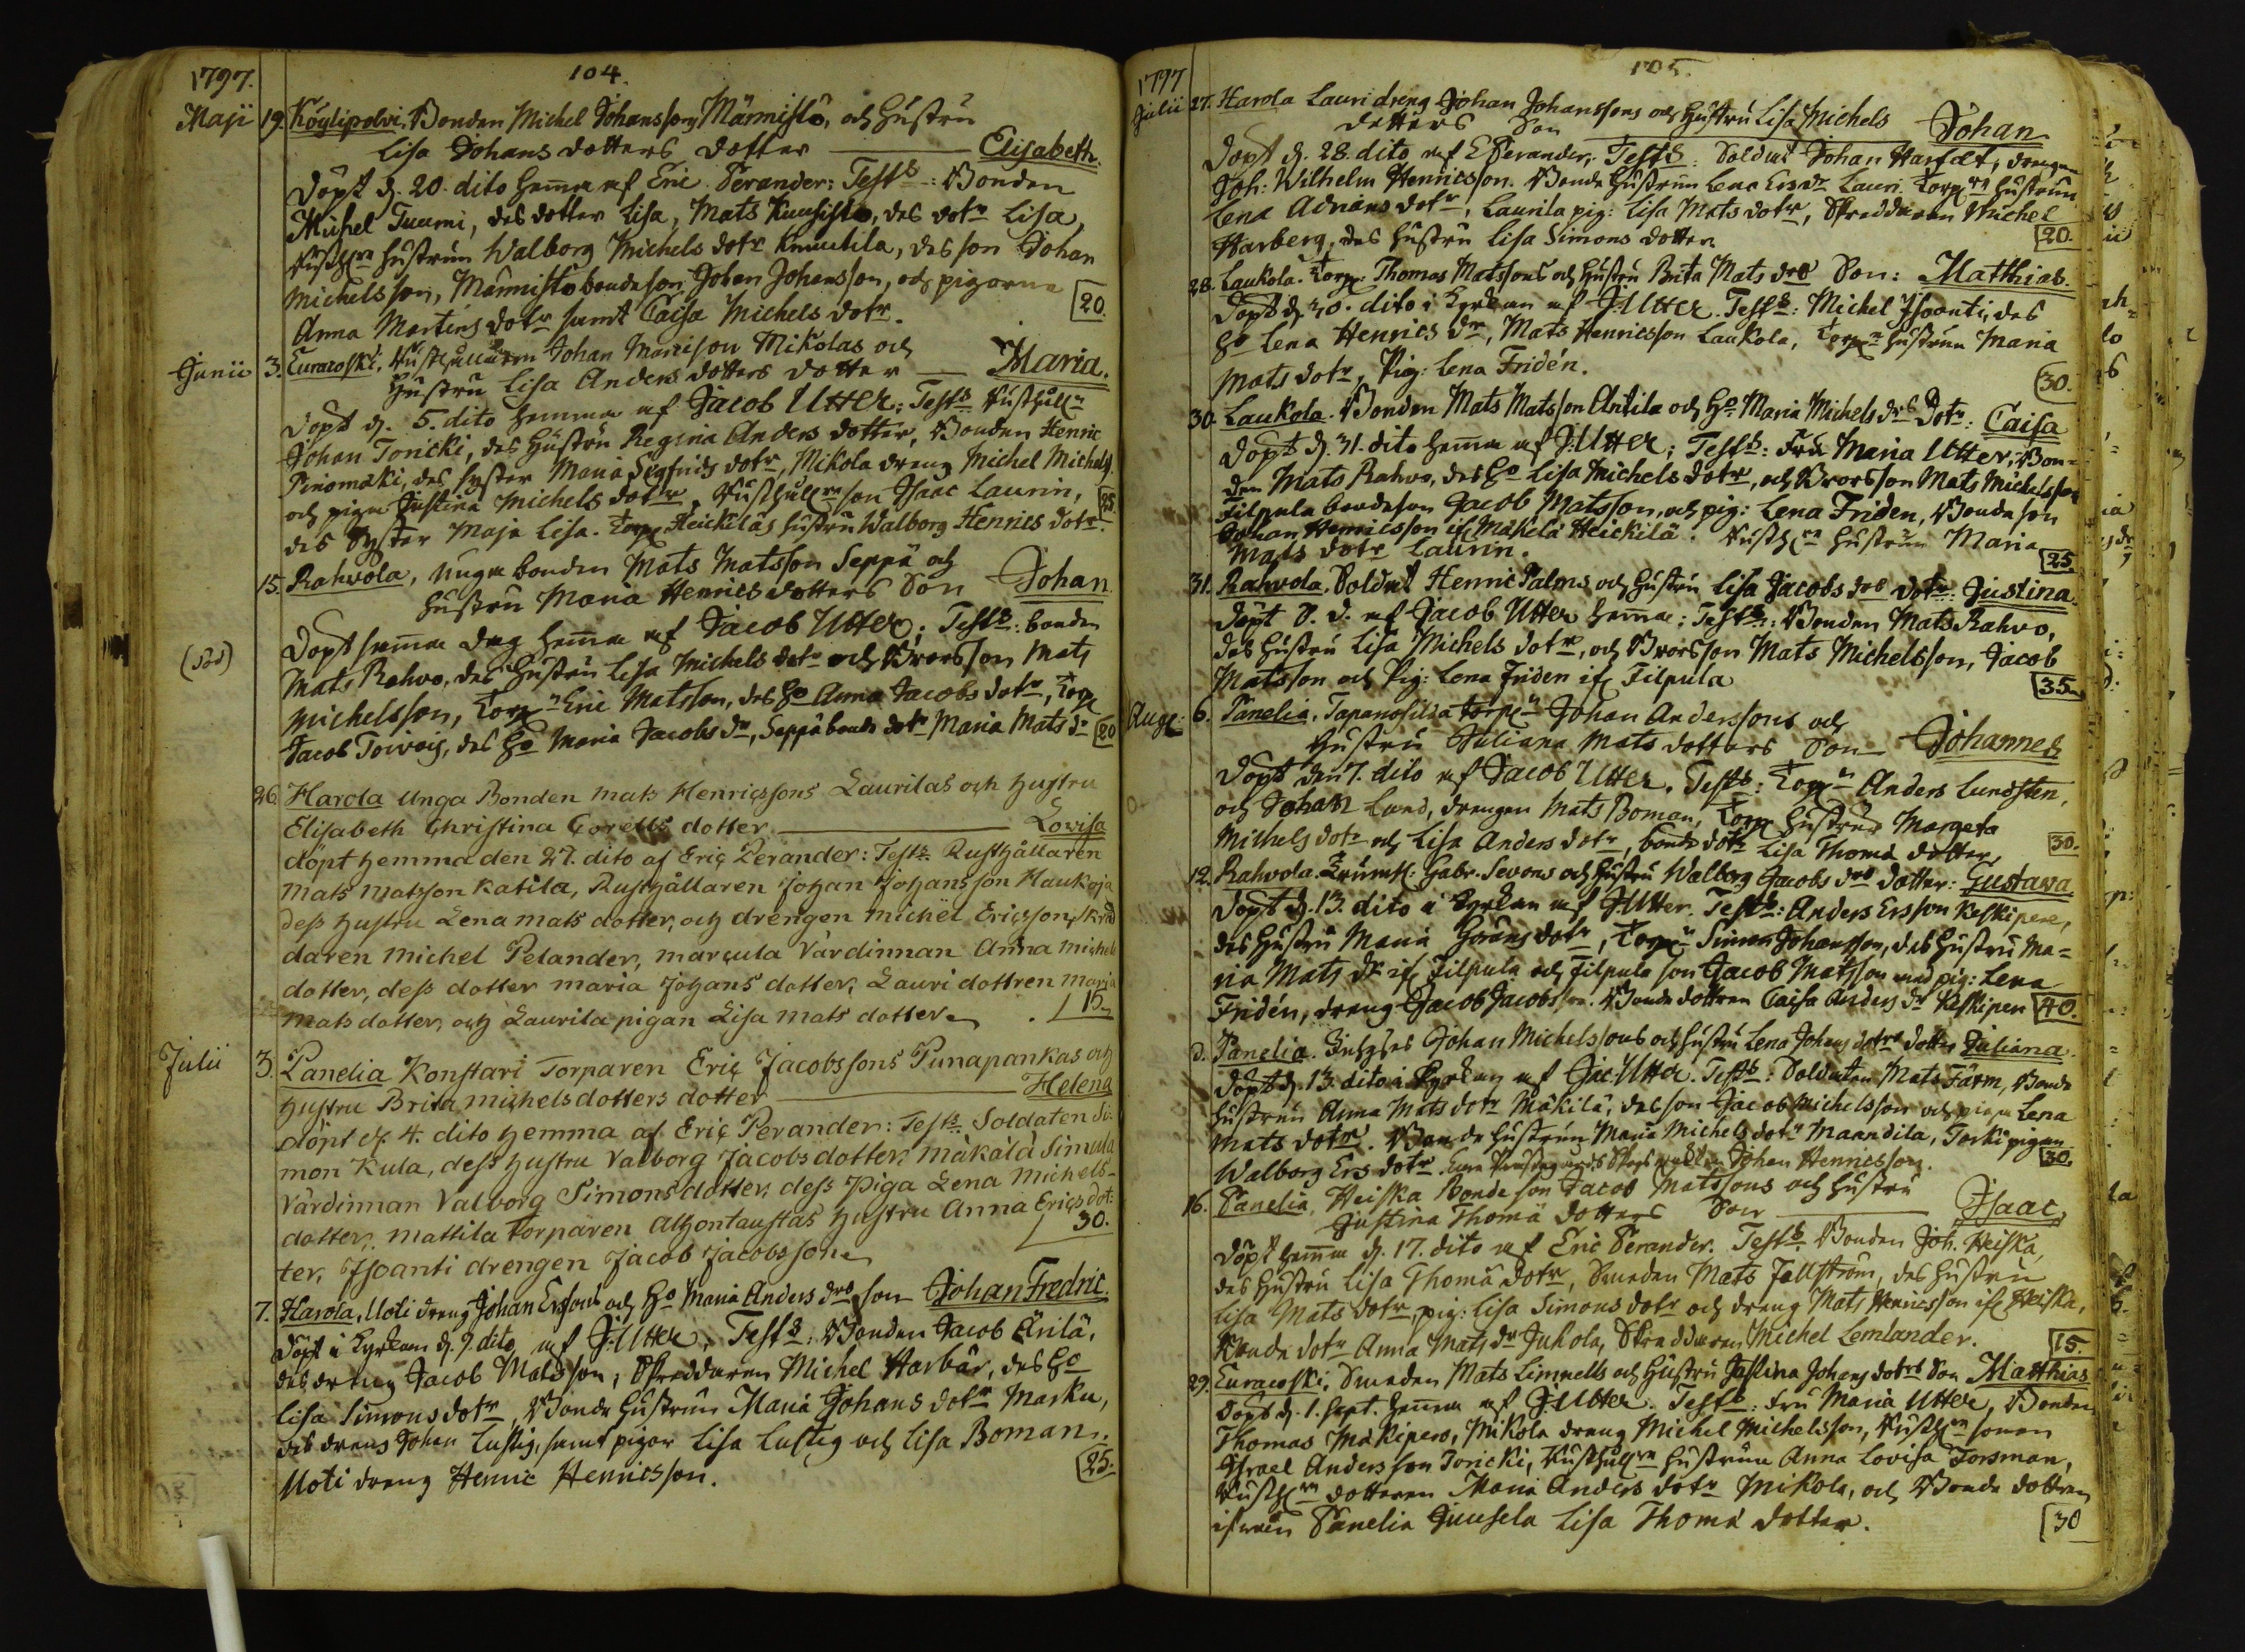 104.
1797.
Maji 19. Köylipolvi. Bonden Michel Johansson Männistö, och Hustru
Lisa Johans dotters dotter Elisabeth.
Döpt d. 20. dito hema af Eric Perander: Testb: Bonden
Michel Tuumi, des dotter Lisa, Mats Kuusisto, des dotr Lisa,
hustrun Walborg Michels dotr Knuutila, des son Johan
Michelsson, Männistö bondeson Johan Johansson, och pigorna
Anna Martins dotr samt Caisa Michels dotr. 20.
Junii 3. Euracoski. Rusthållaren Johan Mikolas och
Hustru Lisa Anders dotters dotter Maria.
Döpt d. 5. dito hemma af Jacob Utter; Testb Rusthålln
Johan Toricki, des Hustru Regina Anders dotter, Bonden Henric
Pinomäki, des syster Maria Sigfrids dotr, Mikola dreng Michel Michelss.
och pigan Justina Michels dotr. Rusthållrn son Isaac Laurin, 25.
des Syster Maja Lisa. Torp. Heickiläs hustru Walborg Henrics dotr.
15. Rahvola, Unga bonden Mats Matsson Seppä och
Hustru Maria Henrics dotters Son Johan.
Döpt samma dag hema af Jacob Utter; Testb: bonden
(död) Mats Rahvo, des Hustru Lisa Michels dotr och Brorsson Mats
Michelsson, Torpn Eric Matsson, des Ho Anna Jacobs dotr, Torp
Jacob Toivois, des Ho Maria Jacobs dr, Seppä bonde dotr Maria Mats dr 20
26. Harola Unga Bonden Mats Henricssons Laurilas och hustru
Elisabeth Christina Goretts dotter Lovisa
döpt hemma den 27. dito af Eric Perander: Testb. Rusthållaren
Mats Matsson Katila, Rusthållaren Johan Johansson Haukoja
dess hustru Lena Mats dotter, och drengen Michel Ericsson, Skräd
daren Michel Pelander, Marcula Värdinnan Anna Michels
dotter, dess dotter Maria Johans dotter, Lauri dottren Maria
Mats dotter, och Laurila pigan Lisa Mats dotter. 15.
Julii 3. Panelia Konstari Torparen Eric Jacobssons Punapankas och
hustru Brita Michelsdotters dotter Helena
döpt d. 4. dito hemma af Eric Perander: Testb. Soldaten Si-
mon Kula, dess hustru Valborg Jacobs dotter, Mäkälä Simula
Värdinnan Valborg Simons dotter, dess Piga Lena Michels-
dotter, Mattila torparen Ahontaustas hustru Anna Erics dot-
ter, Isoanti drengen Jacob Jacobsson. 30.
7. Harola, Uoti dreng Johan Erssons och Ho Maria Anders drs son Johan Fredric.
Döpt i Kyrkan d. 9. dito af J: Utter. Testb: Bonden Jacob Änilä,
des dreng Jacob Matsson, Skreddaren Michel Harbär, des Ho
Lisa Simons dotr, Bonde Hustrun Maria Johans dotr Marku,
des dreng Johan Lustig, samt pigor Lisa Lustig och Lisa Boman,
Uoti dreng Henric Henricsson. 25.
105.
1797
Julii 27. Harola Lauri dreng Johan Johanssons och Hustru Lisa Michels
dotters Son Johan
Döpt d. 28. dito af E Perander. Testb: Soldat Johan Harfelt, drengen
Joh: Wilhelm Henricsson. Bonde Hustrun Lena Ers dr Lauri. Torprn hustrun
Lena Adrians dotr, Laurila pig: Lisa Mats dotr, Skreddaren Michel
Harberg, des hustru Lisa Simons dotter 20.
28. Laukola. Torp: Thomas Matssons och Hustru Brita Mats drs Son: Matthias.
Döpt d. 30. dito i Kyrkan af J: Utter. Testb: Michel Isoanti, des
Ho Lena Henrics dr, Mats Henricsson Laukola, Torprn hustrun Maria
Mats dotr, Pig: Lena Fridén. 30.
30. Laukola. Bonden Mats Matsson Antila och Ho Maria Michels drs Dotr: Caisa
Döpt d. 31. dito hema af J: Utter; Testb: Fru Maria Utter, Bon-
den Mats Rahvo, des Ho Lisa Michels dotr, och Brorsson Mats Michelsson
Filpula bondeson Jacob Matsson, och pig: Lena Friden, Bonde son
Johan Henricsson if: Mäkelä Heickilä. Rusthrn Hustrun Maria
Mats dotr Laurin. 25.
31. Rahvola. Soldat Henric Palms och Hustru Lisa Jacobs drs dotr: Justina.
Döpt S. D. af Jacob Utter hema: Testb: Bonden Mats Rahvo,
des Hustru Lisa Michels dotr, och Brorsson Mats Michelsson, Jacob
Matsson och Pig: Lena Friden if: Filpula 35.
Aug: 6. Panelia, torpn Johan Anderssons och
Hustru Juliana Mats dotters Son Johannes
Döpt den 7. dito af Jacob Utter. Testb: Torpn Anders Lundsten,
och Johan Lund, drengen Mats Boman, Torp Hustrun Margeta
Michels dotr och Lisa Anders dotr, bonde dotr Lisa Thomä dotter, 30.
12. Rahvola. Gabr. Sevons och Hustru Walborg Jacobs drs dotter: Gustava
Döpt d. 13. dito i Kyrkan af J: Utter. Testb: Anders Ersson Keskipere,
des Hustru Maria Görans dotr, Torpn Simon Johansson, des Hustru Ma-
ria Mats dr if: Filpula och Filpula son Jacob Matsson med pig: Lena
Fridén, dreng Jacob Jacobsson. Bonde dottren Caisa Anders dr Keskipere 40.
d. Panelia. Johan Michelssons och Hustru Lena Johans dotrs dotter Juliana
Döpt d. 13. dito i Kyrkan af Jac: Utter. Testb: Soldaten Mats Färm, Bonde
hustrun Anna Mats dotr Mäkilä, des son Jacob Michelsson och pigan Lena
Mats dotr. Bonde hustrun Maria Michels dotr Maandila, Torki pigan
Walborg Ers dotr. Johan Henricsson. 30.
16. Panelia, Heiska Bonde son Jacob Matssons och Hustru
Justina Thomä dotters Son Isaac
Döpt hema d. 17. dito af Eric Perander. Testb: Bonden Joh. Heiska,
des Hustru Lisa Thomä dotr, Smeden Mats Fallström, des hustru
Lisa Mats dotr, pig: Lisa Simons dotr och dreng Mats Henricsson if: Heiska,
Bonde dotr Anna Mats dr Juhola, Skreddaren Michel Lemlander. 15.
29. Euracoski. Smeden Mats Limnells och Hustru Justina Johans dotrs Son Matthias
Döpt d. 1. Sept. hema af J: Utter. Testb: Fru Maria Utter, Bonden
Thomas Mäkipere, Mikola dreng Michel Michelsson, Rusthrn sonen
Israel Andersson Toricki, Rusthållrn Hustrun Anna Lovisa Forsman,
Rusthrn dotteren Maria Anders dotr Mikola, och Bonde dottren
ifrån Panelia Juusela Lisa Thomä dotter. 30